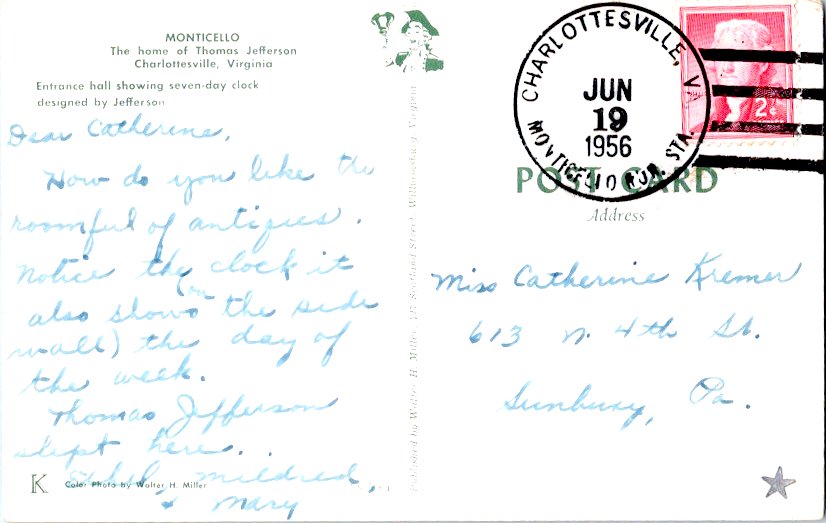 MONTICELLO
The home of Thomas Jefferson
Charlottesville, Virginia
Entrance hall showing seven-day clock
designed by Jefferson
Dear Catherine,
How do you like the
roomful of antiques.
Notice the clock it
also shows (on the side
wall) the day of
the week.
Thomas Jefferson
slept here..
Ethel, Mildred,
& Mary
K
Color Photo by Walter H. Miller
Published by Walter H. Miller, Scotland Street, Williamsburg, Virginia
CHARLOTTESVILLE, VA
JUN
19
1956
MONTICELLO RUR. STA.
2¢
POST CARD
Address
Miss Catherine Kremer
613 N. 4th St.
Sunbury, Pa.